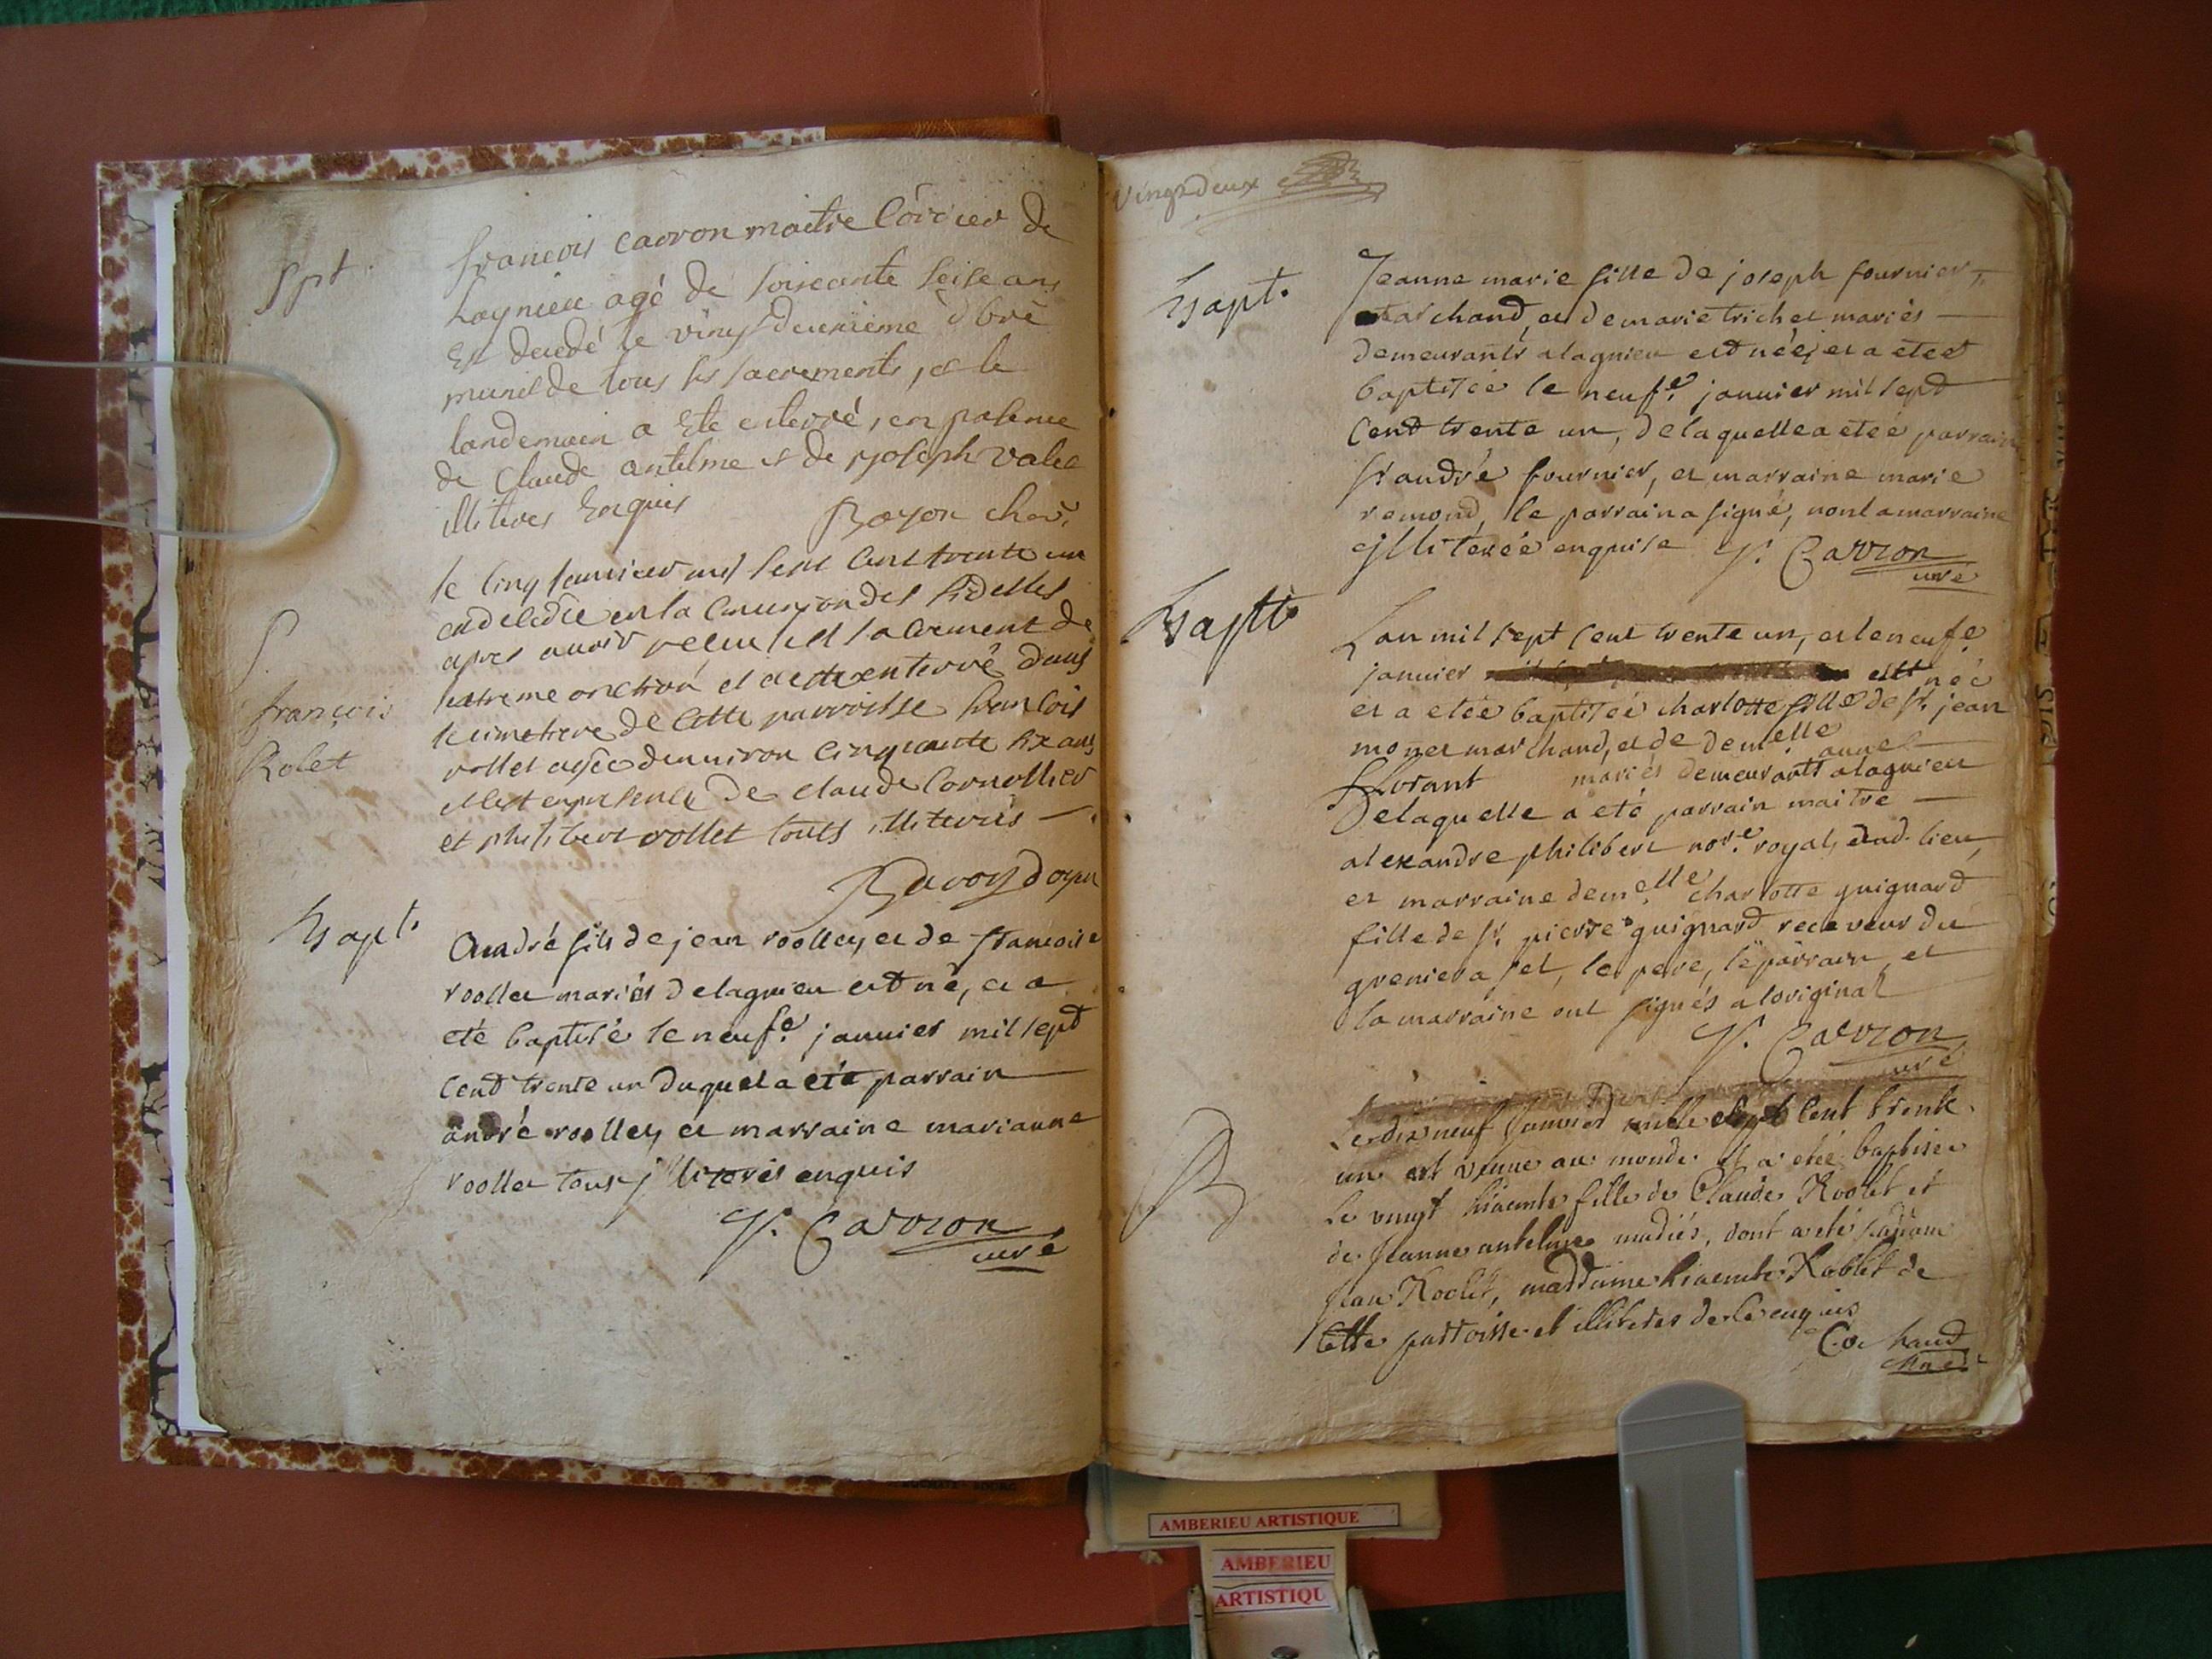 Spt.
francois carron maitre
de
Lagnieu agé de soixcante seise ans
Est decedé le vingtdeuxieme Xbre
munit de tous ses sacrements, et le
landemain a Ete enterré, en presence
de Claude antelme et de joseph valet
illiteres Enquis
Royon
S.
françois
Rolet
le cinq januier mil sept cent trente un
est decedée en la Comunion des fidelles
apres auoir receu le st sacrement de
extreme onction et a esté enterré dans
le cimetiere de Cette parroisse francois
rollet agée denuiron cinquante six ans
de claude Cornollier
et philibert rollet touts illiterés
Bapt.
André fils de jean roolley et de francoise
roollet mariés de lagnieu est né, et a
eté baptisé le neufe. januier mil sept
cent trente un duquel a eté parrain
andré roolley et marraine marianne
roollet tous jlliterés enquis
J. Carron
curé
vingt deux
Bapt.
Jeanne marie fille de joseph fournier
marchand, et de marie trichet mariés
demeurants a lagnieu est née, et a eteé
baptisée le neufe. januier mil sept
cent trente un, de laquelle a eteé parrain
sr andré fournier, et marraine marie
remond, le parrain a signé, non la marraine
jlliterée enquise J. Carron
curé
Baptt.
Lan mil sept cent trente un, et le neufe.
januier est née
et a eteé baptisée charlotte fille de sr. jean
monet marchand, et de demelle anne
florant mariés demeurants a lagnieu
de laquelle a eté parrain maitre
alexandre philibert nore. royal, dud. lieu,
et marraine demelle. charlotte guignard
fille de sr. pierre guignard receveur du
grenier a sel, le pere, le parrain, et
la marraine ont signés a loriginal
J. Carron
curé
B
Le dix neuf januier mille sept cent trente
un est venue au monde et a eté baptisée
le vingt hiacinte fille de Claude Roolet et
de jeanne antelme mariés, dont a eté parrain
jean Roolet, marraine hiacinte Roolet de
Cette parroisse et illiteres de ce enquis
Cochand
AMBERIEU ARTISTIQUE
AMBERIEU
ARTISTIQU